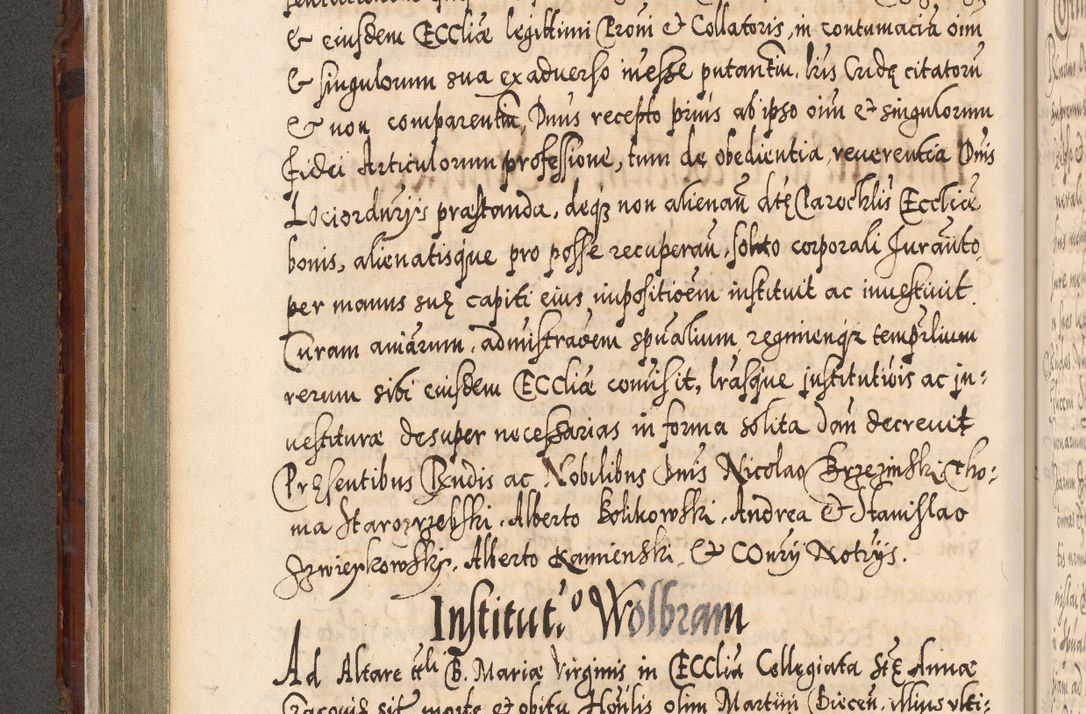 & eiusdem ECCliæ legittimi Proni & Collatoris, in contumaciã oim
& singulorum sua ex adverso inesse putantiũ, lris Cridę citatorũ
& non comparentiũ, Dnus recepto prius ab ipso oim & singulorum
fidei Articulorum professione, tum de obedientia, reuerentia Dnis
Lociordnrijs præstanda, deqȝ non alienañ dtę Parochlis Eccliæ
bonis, alienatisque pro posse recuperañ, solito corporali Jurañto.
per manus suę capiti eius impositioem instituit ac inuestiuit.
Curam aniarum, admistraoem spualium regimenqȝ temprlium
rerum sibi eiusdem ECCliæ comisit, lrasque institutiois ac in=
vestituræ desuper necessarias in forma solita dañ decreuit
Pręsentibus Rndis ac Nobilibus Dnis Nicolao Brzezinski, Tho=
ma Starozrzebski, Alberto Bolikowski, Andrea & Stanislao
Szwieykowskij, Alberto Kamienski, & Coñrij Notrijs.
Institut.º Wolbram
Ad Altare ttli B. Mariæ Virginis in ECCliã Collegiata Stę Annæ
Cracouiæ sit. morte & obitu Honlis olim Martini Biecen. illius vlti=